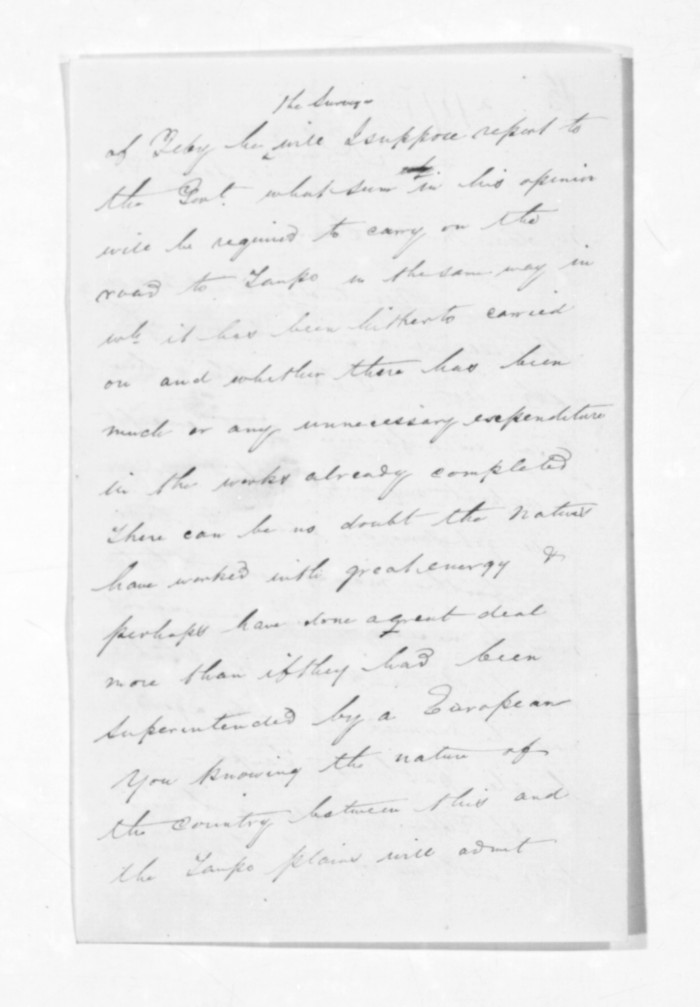 the Survey
of Feby he will I suppose report to
the Govt. what sum in his opinion
will be required to carry on the
road to Taupo in the same way in
wh. it has been hitherto carried
on and whether there has been
much or any unnecessary expenditure
in the works already completed
There can be no doubt the natives
have worked with great energy &
perhaps have done a great deal
more than if they had been
superintended by a European
You knowing the nature of
the country between this and
the Taupo plains will admit